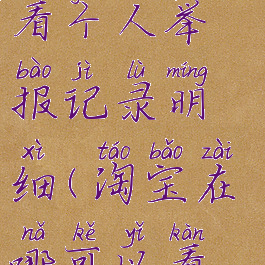 看个人举
bào jì lù míng
报记录明
xì táo bǎo zài
细(淘宝在
nǎ kě yǐ kàn
哪可以看